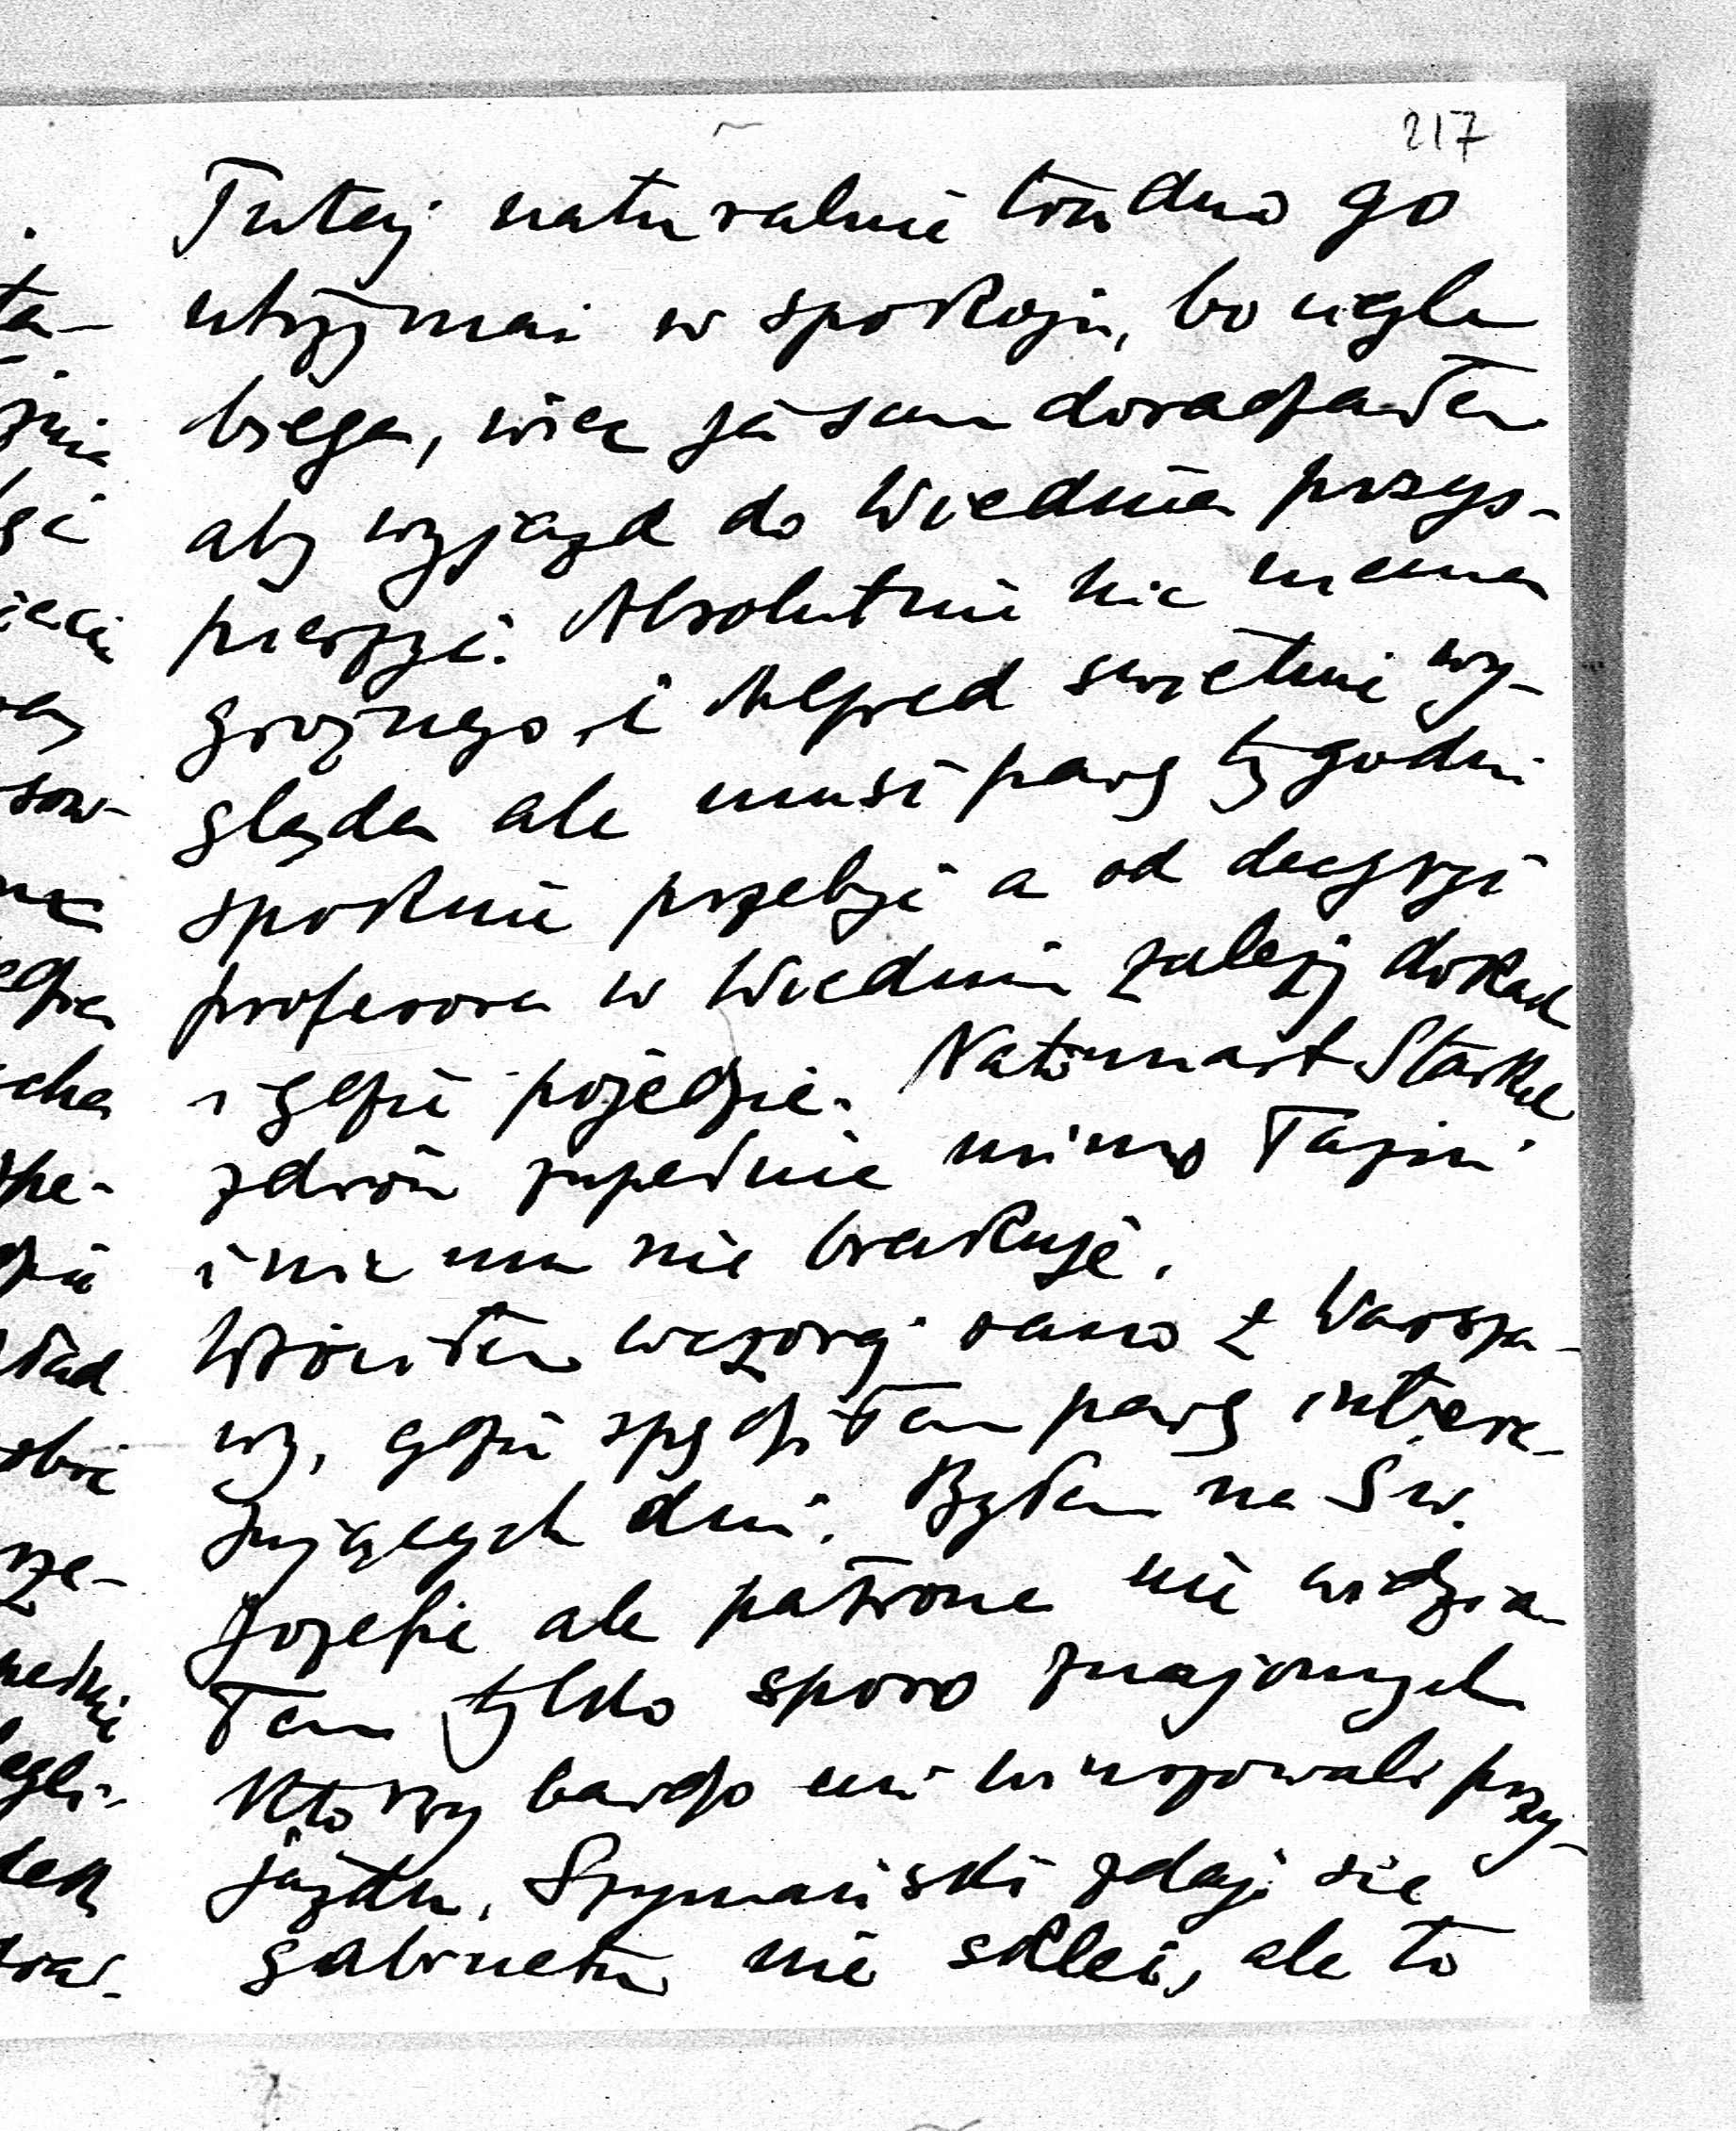 217
Tutaj naturalnie trudno go
utrzymać w spokoju, bo ciągle
biega, więc ja sam doradzałem
aby wyjazd do Wiednia przys-
pieszyć. Absolutnie nic niema
groźnego, i Alfred świetnie wy-
gląda ale musi parę tygodni
spokojnie przebyć a od decyzyi
profesora w Wiedniu zależy dokąd
i gdzie pojedzie. Natomiast Staś
zdrów zupełnie mimo
i nic mu nie brakuje.
Wróciłem wczoraj rano z Warsza-
wy, gdzie spędziłem parę intere-
sujących dni. Byłem na Św.
Józefie ale patrona nie widzia-
łem tylko sporo znajomych
którzy bardzo mi winszowali przy-
jazdu. Szymański zdaje się
gabinetu nie skleci, ale to
ta-
sow-
cha
rze-